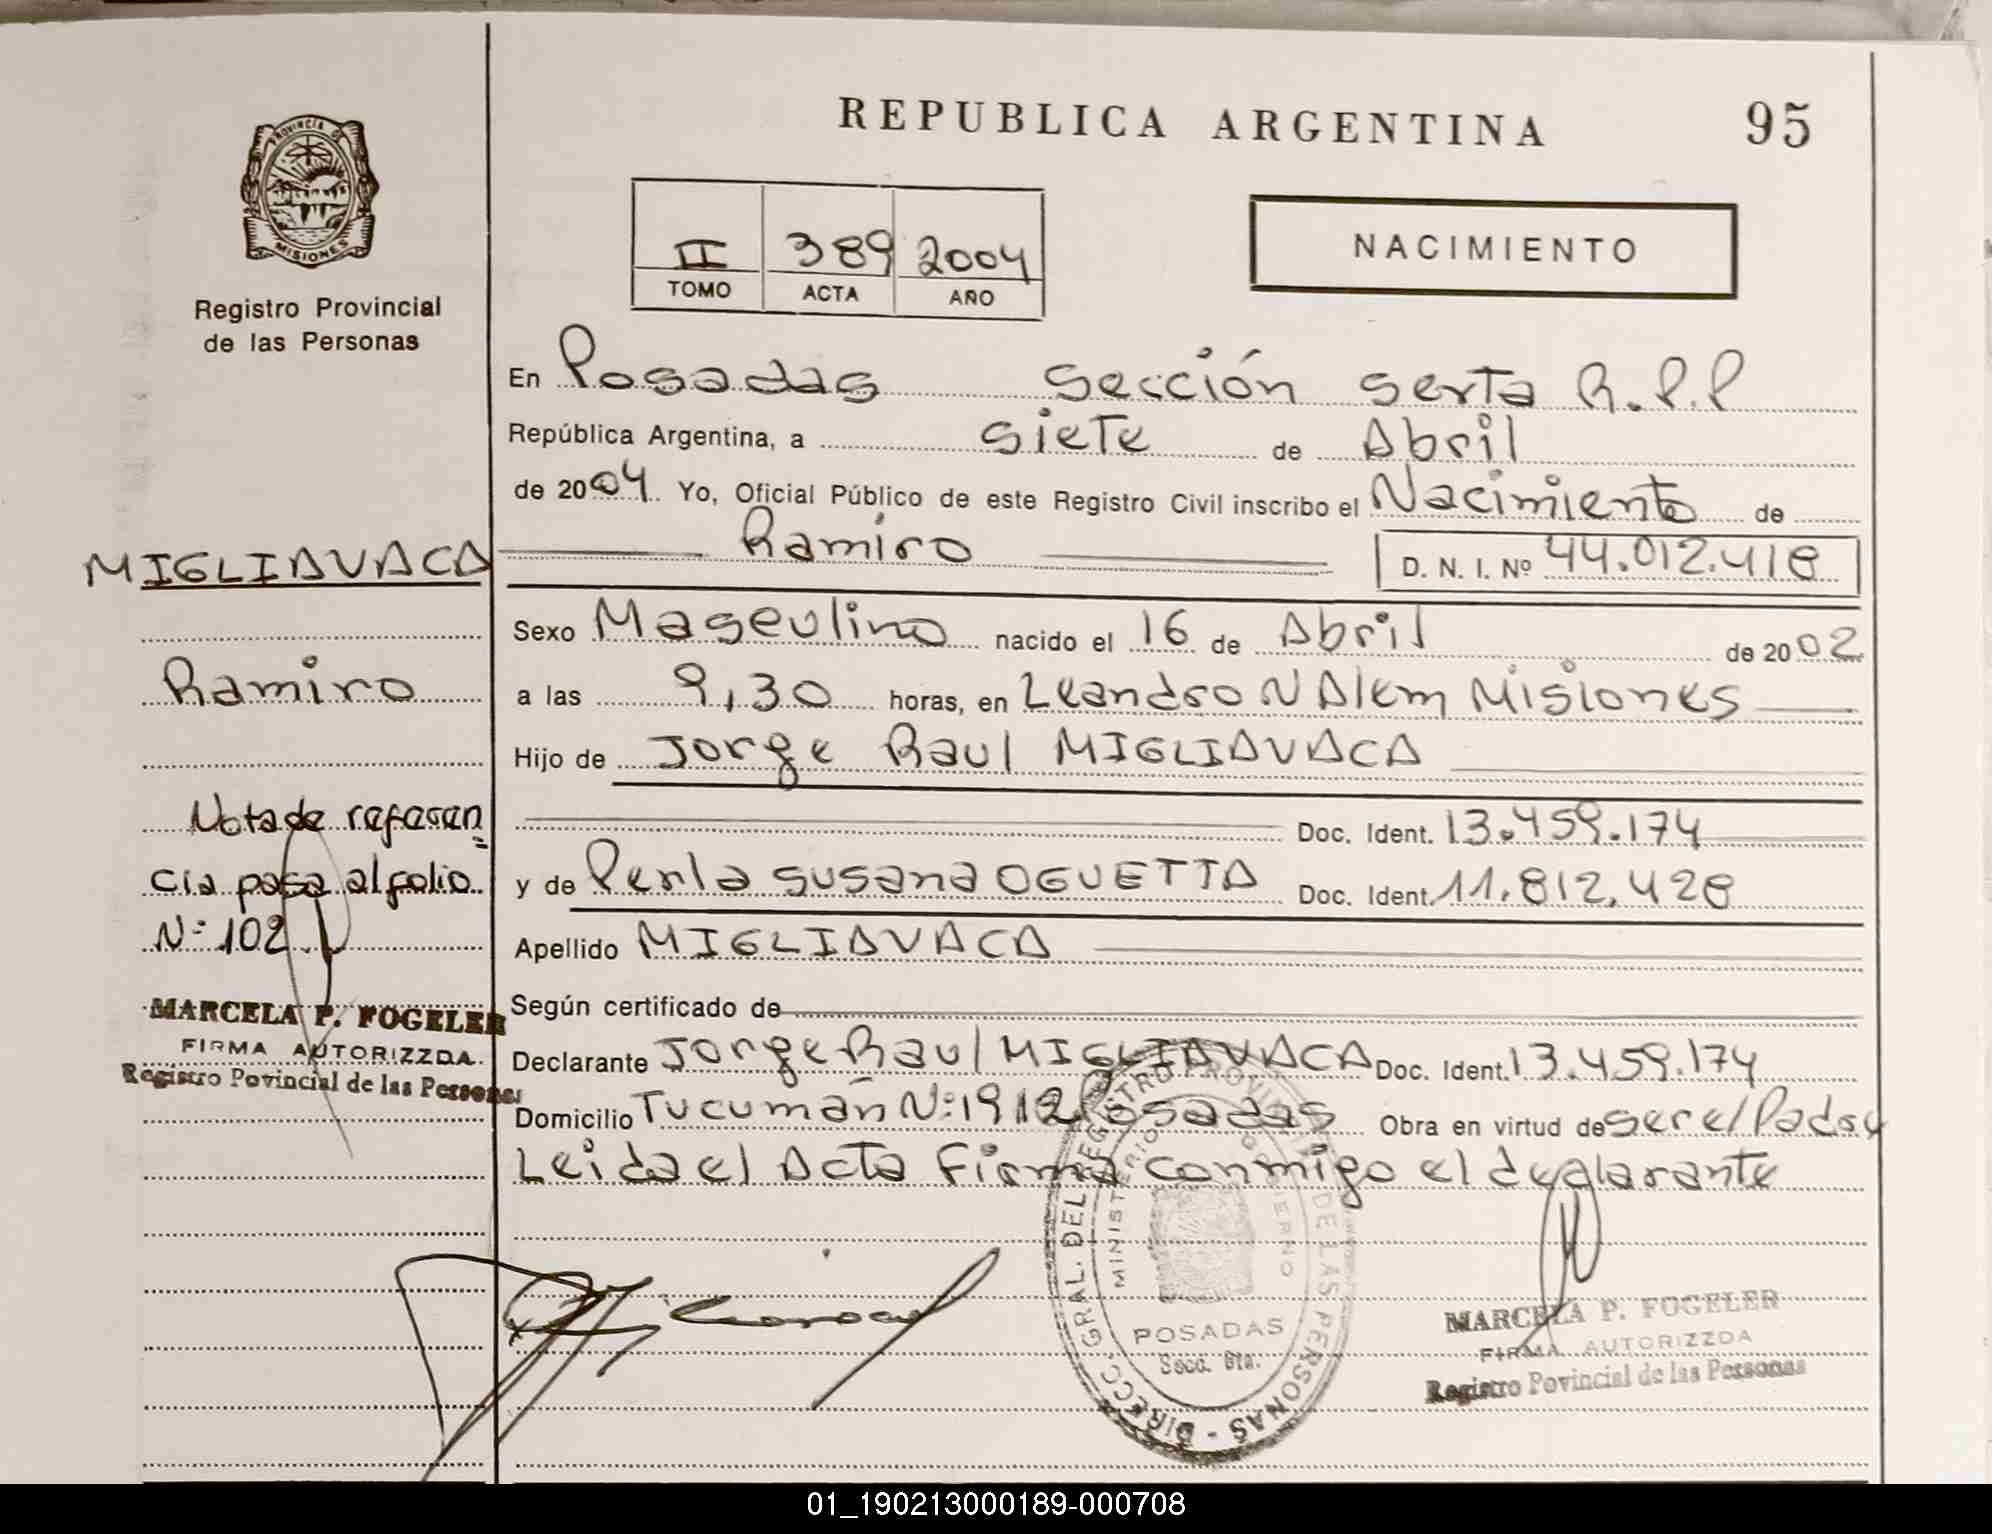 REPUBLICA ARGENTINA 95
PROVINCIA DE
MISIONES
Registro Provincial
de las Personas
II 389 2004
TOMO ACTA AÑO
NACIMIENTO
En Posadas Sección Serta R.P.P
República Argentina, a siete de Abril
de 2004 Yo, Oficial Público de este Registro Civil inscribo el Nacimiento de
Ramiro D. N. I. Nº 44.012.418
MIGLIAVACA
Ramiro
Sexo Masculino nacido el 16 de Abril de 2002
a las 9,30 horas, en Leandro N Alem Misiones
Hijo de Jorge Raul MIGLIAVACA
Doc. Ident. 13.459.174
y de Perla Susana OGUETTA Doc. Ident. 11.812.428
Apellido MIGLIAVACA
Según certificado de
Declarante Jorge Raul MIGLIAVACA Doc. Ident. 13.459.174
Domicilio Tucumán Nº: 1912 Posadas Obra en virtud de ser el Padre y
Leida el Acta Firma conmigo el declarante
Nota de referen=
cia pasa al folio
Nº 102
MARCELA P. FOGELER
FIRMA AUTORIZZDA
Registro Povincial de las Personas
DIRECC. GRAL. DEL REGISTRO PROVINCIAL DE LAS PERSONAS -
MINISTERIO GOBIERNO
POSADAS
Secc. 6ta.
MARCELA P. FOGELER
FIRMA AUTORIZZDA
Registro Povincial de las Personas
01_190213000189-000708